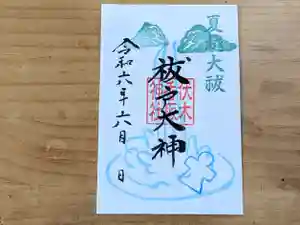 夏越大祓
祓戸大神
令和六年六月 日